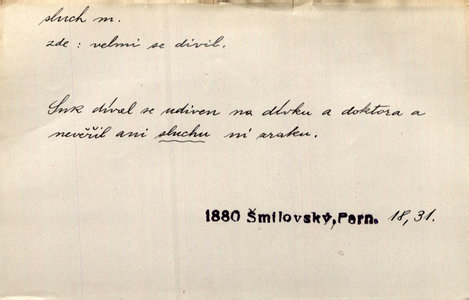 sluch m.
zde : velmi se divil.
Suk díval se udiven na dívku a doktora a
nevěřil ani sluchu ni zraku.
1880 Šmilovský, Parn. 18, 31.